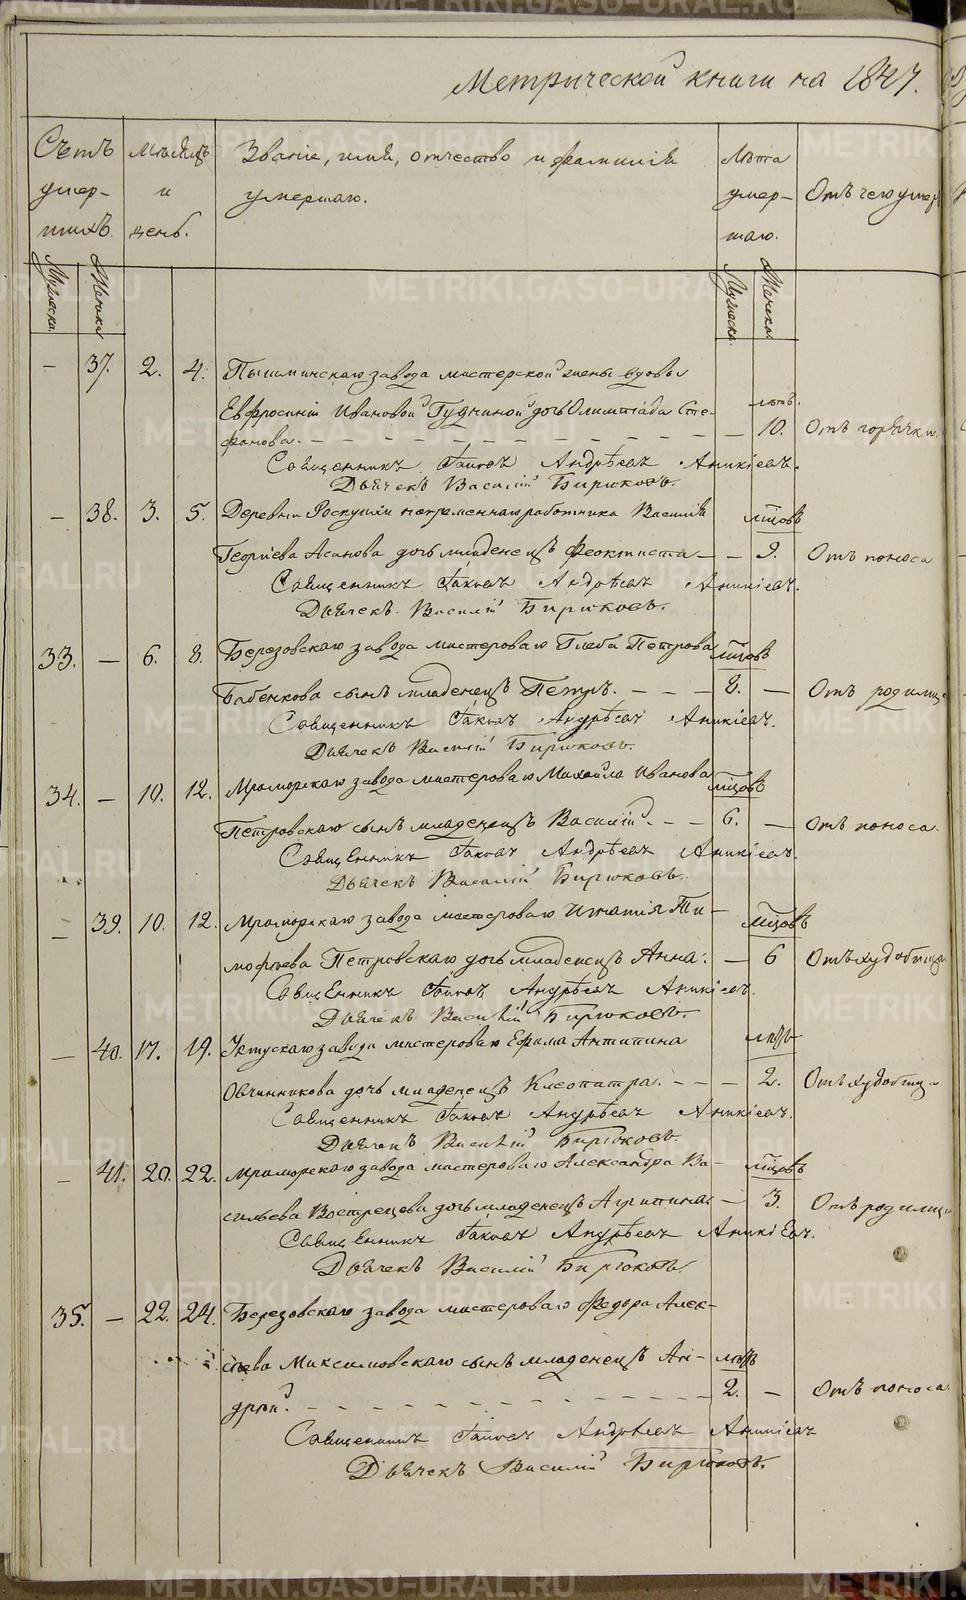 Метрической книги на 1847.
Счетъ умер- шихъ.
Мѣсяцъ и день.
Званіе, имя, отчество и фамилія умершаго.
Лѣта умер- шаго.
Отъ чего умер
Мужеска.
Женска
Мужеска.
Женска.
— 37. 2. 4. Пышминскаго завода мастерской жены вдовы
Евфросиніи Ивановой дочь Олимпіада Сте- лѣтъ.
фанова. — 10. Отъ горячки
Священникъ Іаковъ Андрѣевъ Аникіевъ.
Дьячекъ Василій Бирюковъ.
— 38. 3. 5. Деревни работника Василія мѣсцовъ
Георгіева дочь младенецъ Феоктиста — — 9. Отъ поноса
Священникъ Іаковъ Андрѣевъ Аникіевъ.
Дьячекъ Василій Бирюковъ.
33. — 6. 8. Березовскаго завода мастероваго Глеба Петрова мѣсцовъ
Бабенкова сынъ младенецъ Петръ. — — — 8. — Отъ родимца
Священникъ Іаковъ Андрѣевъ Аникіевъ.
Дьячекъ Василій Бирюковъ.
34. — 10. 12. Мраморскаго завода мастероваго Михайла Иванова мѣсцовъ
Петровскаго сынъ младенецъ Василій. — — 6. — Отъ поноса.
Священникъ Іаковъ Андрѣевъ Аникіевъ.
Дьячекъ Василій Бирюковъ.
— 39. 10. 12. Мраморскаго завода мастероваго Игнатія Ти- мѣсцовъ
мофѣева Петровскаго дочь младенецъ Анна. — 6 Отъ худобищи
Священникъ Іаковъ Андрѣевъ Аникіевъ.
Дьячекъ Василій Бирюковъ.
— 40. 17. 19. Уктускаго завода мастероваго Ефима Антипина лѣтъ
Овчинникова дочь младенецъ Клеопатра. — — — 2. Отъ худобищ
Священникъ Іаковъ Андрѣевъ Аникіевъ.
Дьячекъ Василій Бирюковъ.
— 41. 20. 22. Мраморскаго завода мастероваго Александра Ва- мѣсцовъ
сильева Вострецова дочь младенецъ Агрипина. — 3. Отъ родимца
Священникъ Іаковъ Андрѣевъ Аникіевъ.
Дьячекъ Василій Бирюковъ.
35. — 22. 24. Березовскаго завода мастероваго Федора Алек-
сѣева Максимовскаго сынъ младенецъ Ан- лѣтъ
дрей. — 2. — Отъ поноса
Священникъ Іаковъ Андрѣевъ Аникіевъ
Дьячекъ Василій Бирюковъ.
METRIKI.GASO-URAL.RU